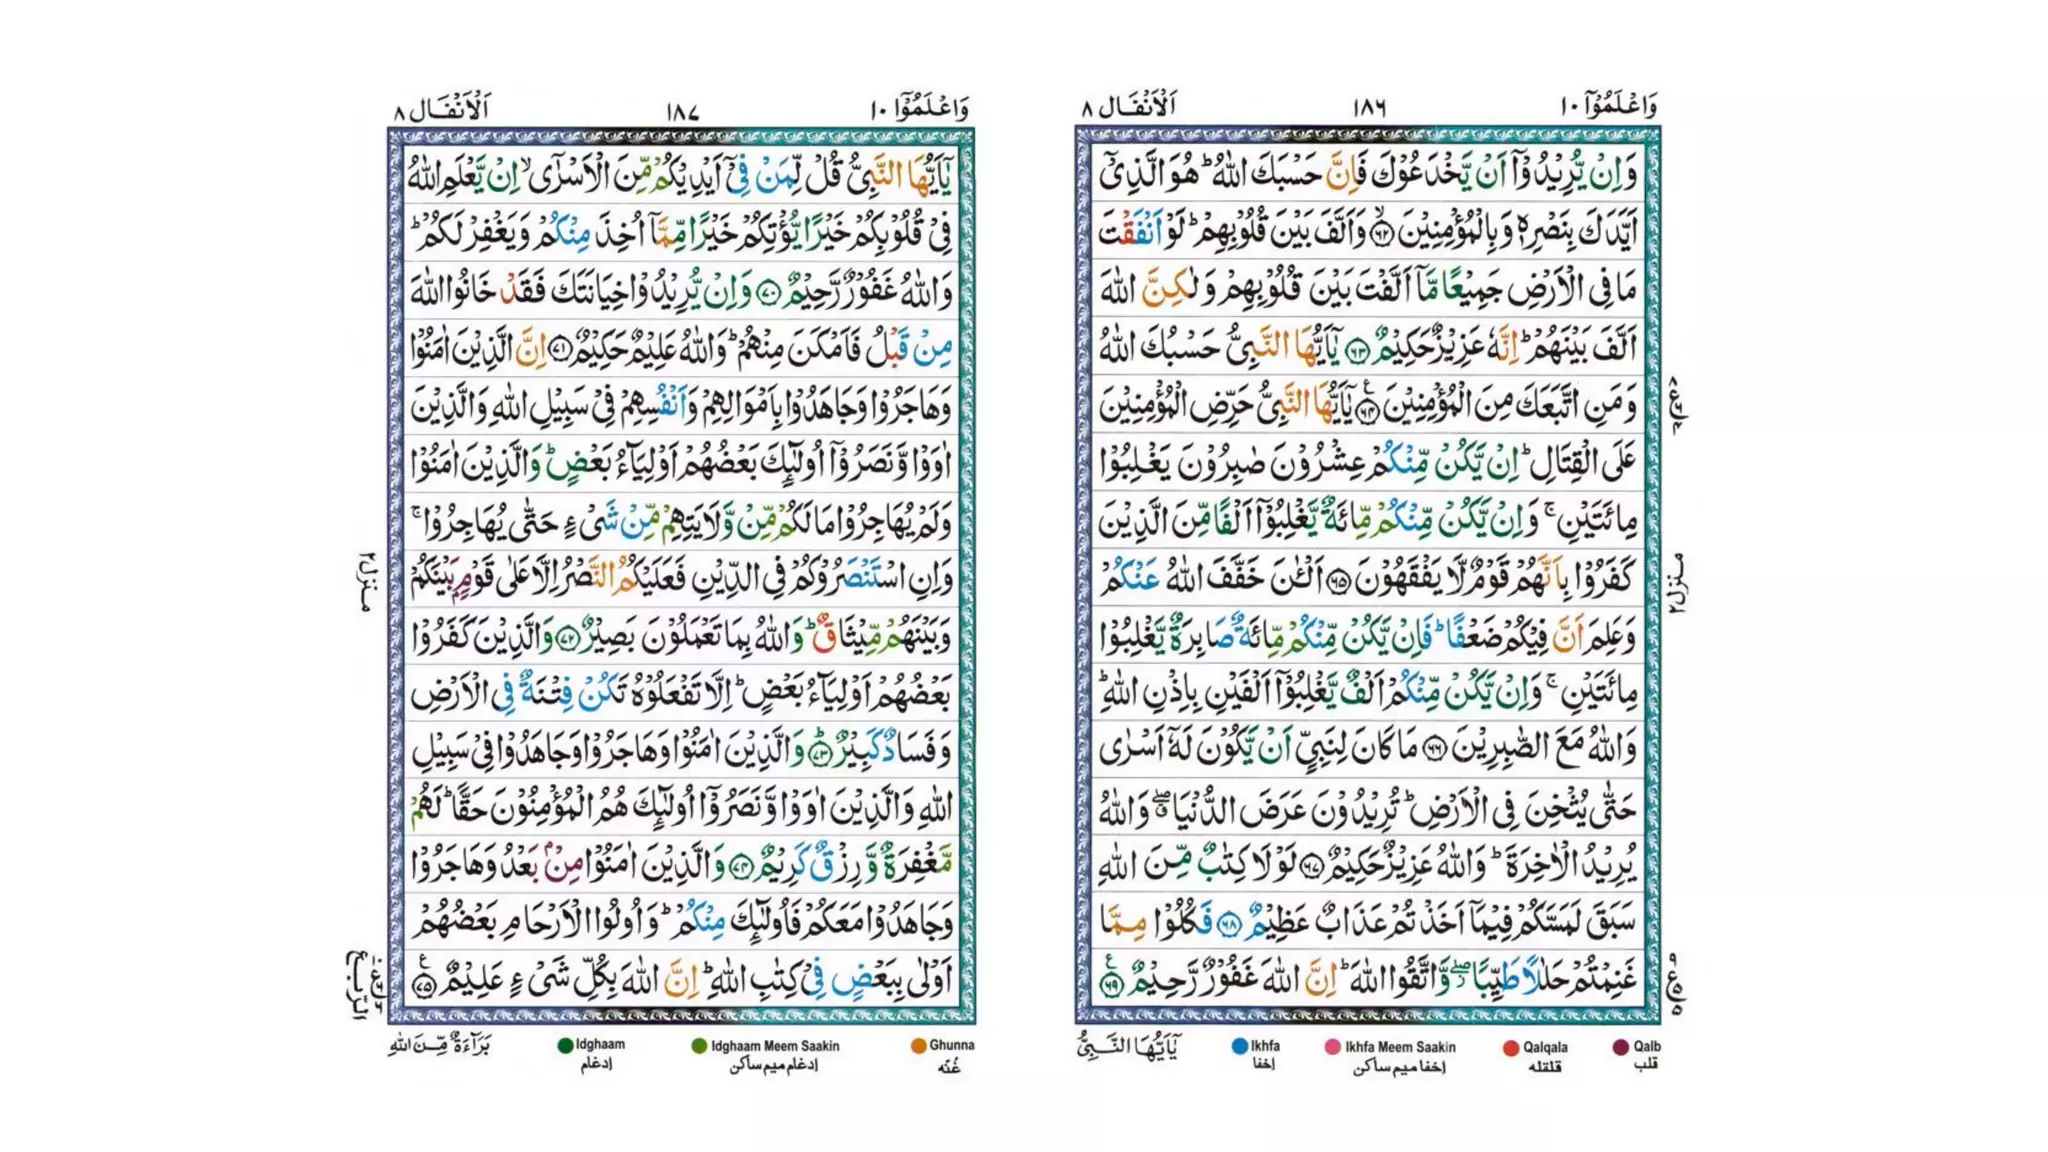 وَاعْلَمُوْۤا ۱۰
۱۸۶
اَلْاَنْفَال ۸
وَاِنْ يُّرِيْدُوْۤا اَنْ يَّخْدَعُوْكَ فَاِنَّ حَسْبَكَ اللّٰهُ ؕ هُوَ الَّذِيْۤ
اَيَّدَكَ بِنَصْرِهٖ وَبِالْمُؤْمِنِيْنَ ۙ﴿۶۲﴾ وَاَلَّفَ بَيْنَ قُلُوْبِهِمْ ؕ لَوْ اَنْفَقْتَ
مَا فِى الْاَرْضِ جَمِيْعًا مَّاۤ اَلَّفْتَ بَيْنَ قُلُوْبِهِمْ وَلٰكِنَّ اللّٰهَ
اَلَّفَ بَيْنَهُمْ ؕ اِنَّهٗ عَزِيْزٌ حَكِيْمٌ ﴿۶۳﴾ يٰۤاَيُّهَا النَّبِىُّ حَسْبُكَ اللّٰهُ
وَمَنِ اتَّبَعَكَ مِنَ الْمُؤْمِنِيْنَ ﴿۶۴﴾ يٰۤاَيُّهَا النَّبِىُّ حَرِّضِ الْمُؤْمِنِيْنَ
عَلَى الْقِتَالِ ؕ اِنْ يَّكُنْ مِّنْكُمْ عِشْرُوْنَ صٰبِرُوْنَ يَغْلِبُوْا
مِائَتَيْنِ ۚ وَاِنْ يَّكُنْ مِّنْكُمْ مِّائَةٌ يَّغْلِبُوْۤا اَلْفًا مِّنَ الَّذِيْنَ
كَفَرُوْا بِاَنَّهُمْ قَوْمٌ لَّا يَفْقَهُوْنَ ﴿۶۵﴾ اَلْـٰٔنَ خَفَّفَ اللّٰهُ عَنْكُمْ
وَعَلِمَ اَنَّ فِيْكُمْ ضَعْفًا ؕ فَاِنْ يَّكُنْ مِّنْكُمْ مِّائَةٌ صَابِرَةٌ يَّغْلِبُوْا
مِائَتَيْنِ ۚ وَاِنْ يَّكُنْ مِّنْكُمْ اَلْفٌ يَّغْلِبُوْۤا اَلْفَيْنِ بِاِذْنِ اللّٰهِ ؕ
وَاللّٰهُ مَعَ الصّٰبِرِيْنَ ﴿۶۶﴾ مَا كَانَ لِنَبِىٍّ اَنْ يَّكُوْنَ لَهٗۤ اَسْرٰى
حَتّٰى يُثْخِنَ فِى الْاَرْضِ ؕ تُرِيْدُوْنَ عَرَضَ الدُّنْيَا ۖ وَاللّٰهُ
يُرِيْدُ الْاٰخِرَةَ ؕ وَاللّٰهُ عَزِيْزٌ حَكِيْمٌ ﴿۶۷﴾ لَوْلَا كِتٰبٌ مِّنَ اللّٰهِ
سَبَقَ لَمَسَّكُمْ فِيْمَاۤ اَخَذْتُمْ عَذَابٌ عَظِيْمٌ ﴿۶۸﴾ فَكُلُوْا مِمَّا
غَنِمْتُمْ حَلٰلًا طَيِّبًا ۖ وَّاتَّقُوا اللّٰهَ ؕ اِنَّ اللّٰهَ غَفُوْرٌ رَّحِيْمٌ ﴿۶۹﴾
منزل ۲
يٰۤاَيُّهَا النَّبِىُّ
Ikhfa
اخفا
Ikhfa Meem Saakin
اخفا میم ساکن
Qalqala
قلقله
Qalb
قلب
وَاعْلَمُوْۤا ۱۰
۱۸۷
اَلْاَنْفَال ۸
يٰۤاَيُّهَا النَّبِىُّ قُلْ لِّمَنْ فِىْۤ اَيْدِيْكُمْ مِّنَ الْاَسْرٰٓى ۙ اِنْ يَّعْلَمِ اللّٰهُ
فِىْ قُلُوْبِكُمْ خَيْرًا يُّؤْتِكُمْ خَيْرًا مِّمَّاۤ اُخِذَ مِنْكُمْ وَيَغْفِرْ لَكُمْ ؕ
وَاللّٰهُ غَفُوْرٌ رَّحِيْمٌ ﴿۷۰﴾ وَاِنْ يُّرِيْدُوْا خِيَانَتَكَ فَقَدْ خَانُوا اللّٰهَ
مِنْ قَبْلُ فَاَمْكَنَ مِنْهُمْ ؕ وَاللّٰهُ عَلِيْمٌ حَكِيْمٌ ﴿۷۱﴾ اِنَّ الَّذِيْنَ اٰمَنُوْا
وَهَاجَرُوْا وَجَاهَدُوْا بِاَمْوَالِهِمْ وَاَنْفُسِهِمْ فِىْ سَبِيْلِ اللّٰهِ وَالَّذِيْنَ
اٰوَوْا وَّنَصَرُوْۤا اُولٰٓئِكَ بَعْضُهُمْ اَوْلِيَآءُ بَعْضٍ ؕ وَالَّذِيْنَ اٰمَنُوْا
وَلَمْ يُهَاجِرُوْا مَا لَكُمْ مِّنْ وَّلَايَتِهِمْ مِّنْ شَىْءٍ حَتّٰى يُهَاجِرُوْا ۚ
وَاِنِ اسْتَنْصَرُوْكُمْ فِى الدِّيْنِ فَعَلَيْكُمُ النَّصْرُ اِلَّا عَلٰى قَوْمٍۭ بَيْنَكُمْ
وَبَيْنَهُمْ مِّيْثَاقٌ ؕ وَاللّٰهُ بِمَا تَعْمَلُوْنَ بَصِيْرٌ ﴿۷۲﴾ وَالَّذِيْنَ كَفَرُوْا
بَعْضُهُمْ اَوْلِيَآءُ بَعْضٍ ؕ اِلَّا تَفْعَلُوْهُ تَكُنْ فِتْنَةٌ فِى الْاَرْضِ
وَفَسَادٌ كَبِيْرٌ ؕ﴿۷۳﴾ وَالَّذِيْنَ اٰمَنُوْا وَهَاجَرُوْا وَجَاهَدُوْا فِىْ سَبِيْلِ
اللّٰهِ وَالَّذِيْنَ اٰوَوْا وَّنَصَرُوْۤا اُولٰٓئِكَ هُمُ الْمُؤْمِنُوْنَ حَقًّا ؕ لَهُمْ
مَّغْفِرَةٌ وَّرِزْقٌ كَرِيْمٌ ﴿۷۴﴾ وَالَّذِيْنَ اٰمَنُوْا مِنْۢ بَعْدُ وَهَاجَرُوْا
وَجَاهَدُوْا مَعَكُمْ فَاُولٰٓئِكَ مِنْكُمْ ؕ وَاُولُوا الْاَرْحَامِ بَعْضُهُمْ
اَوْلٰى بِبَعْضٍ فِىْ كِتٰبِ اللّٰهِ ؕ اِنَّ اللّٰهَ بِكُلِّ شَىْءٍ عَلِيْمٌ ﴿۷۵﴾
منزل ۲
الربع
بَرَآءَةٌ مِّنَ اللّٰهِ
Idghaam
ادغام
Idghaam Meem Saakin
ادغام میم ساکن
Ghunna
غُنّه